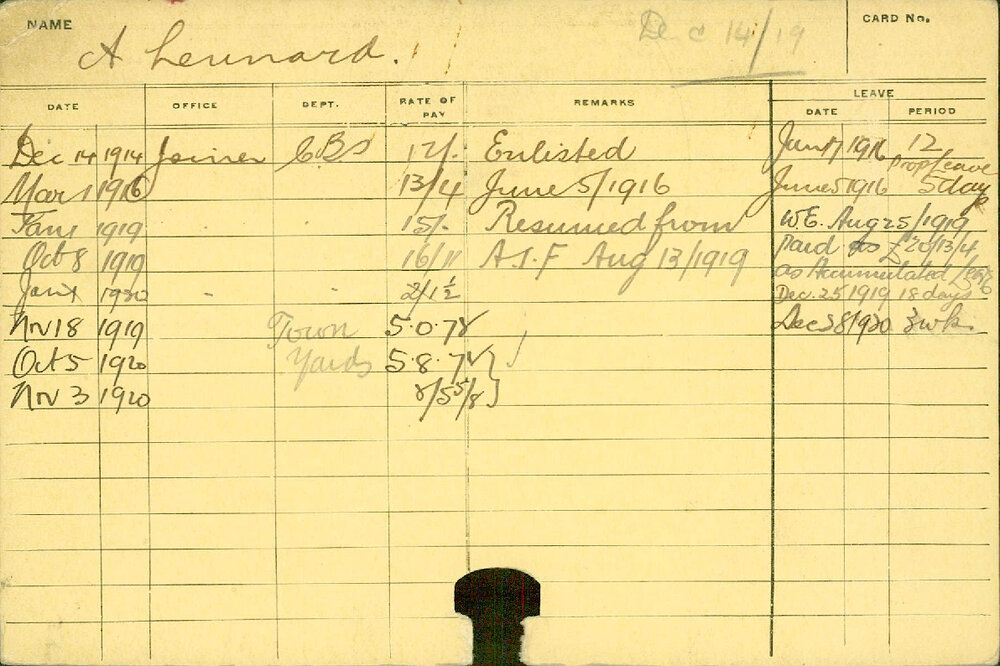 NAME A Lennard. Dec 14/19 CARD No.
LEAVE
DATE OFFICE DEPT. RATE OF PAY REMARKS DATE PERIOD
Dec 14 1914 Joiner CBS 12/. Enlisted Jan 17 1916 12
Prop Leave
Mar 1 1916 13/4 June 5/1916 June 5 1916 5 day
Jany 1919 15/. Resumed from W.E. Aug 25/1919
Oct 8 1919 16/11 A.I.F Aug 13/1919 Paid £20/13/4
as Accumulated
Jan 1920 2/1½ Dec. 25 1919 18 days
Nov 18 1919 Town 5.0.7 Dec 28/1920 3 wk.
Oct 5 1920 Yards 5.8.7
Nov 3 1920 /5 5/8